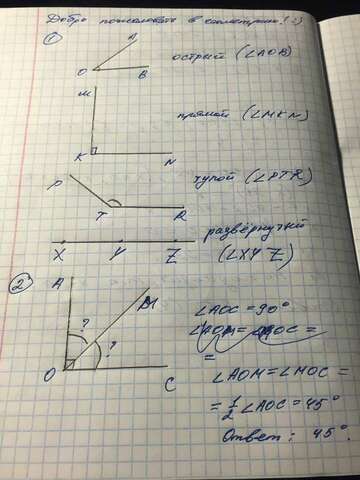 Добро пожаловать в геометрию! :)
①
A
O
B
острый (∠AOB)
M
K
N
прямой (∠MKN)
P
T
R
тупой (∠PTR)
X
Y
Z
развёрнутый
(∠XYZ)
②
A
M
?
?
O
C
∠AOC = 90°
∠AOM = ∠MOC =
=
∠AOM = ∠MOC =
= 1/2 ∠AOC = 45°
Ответ: 45°.